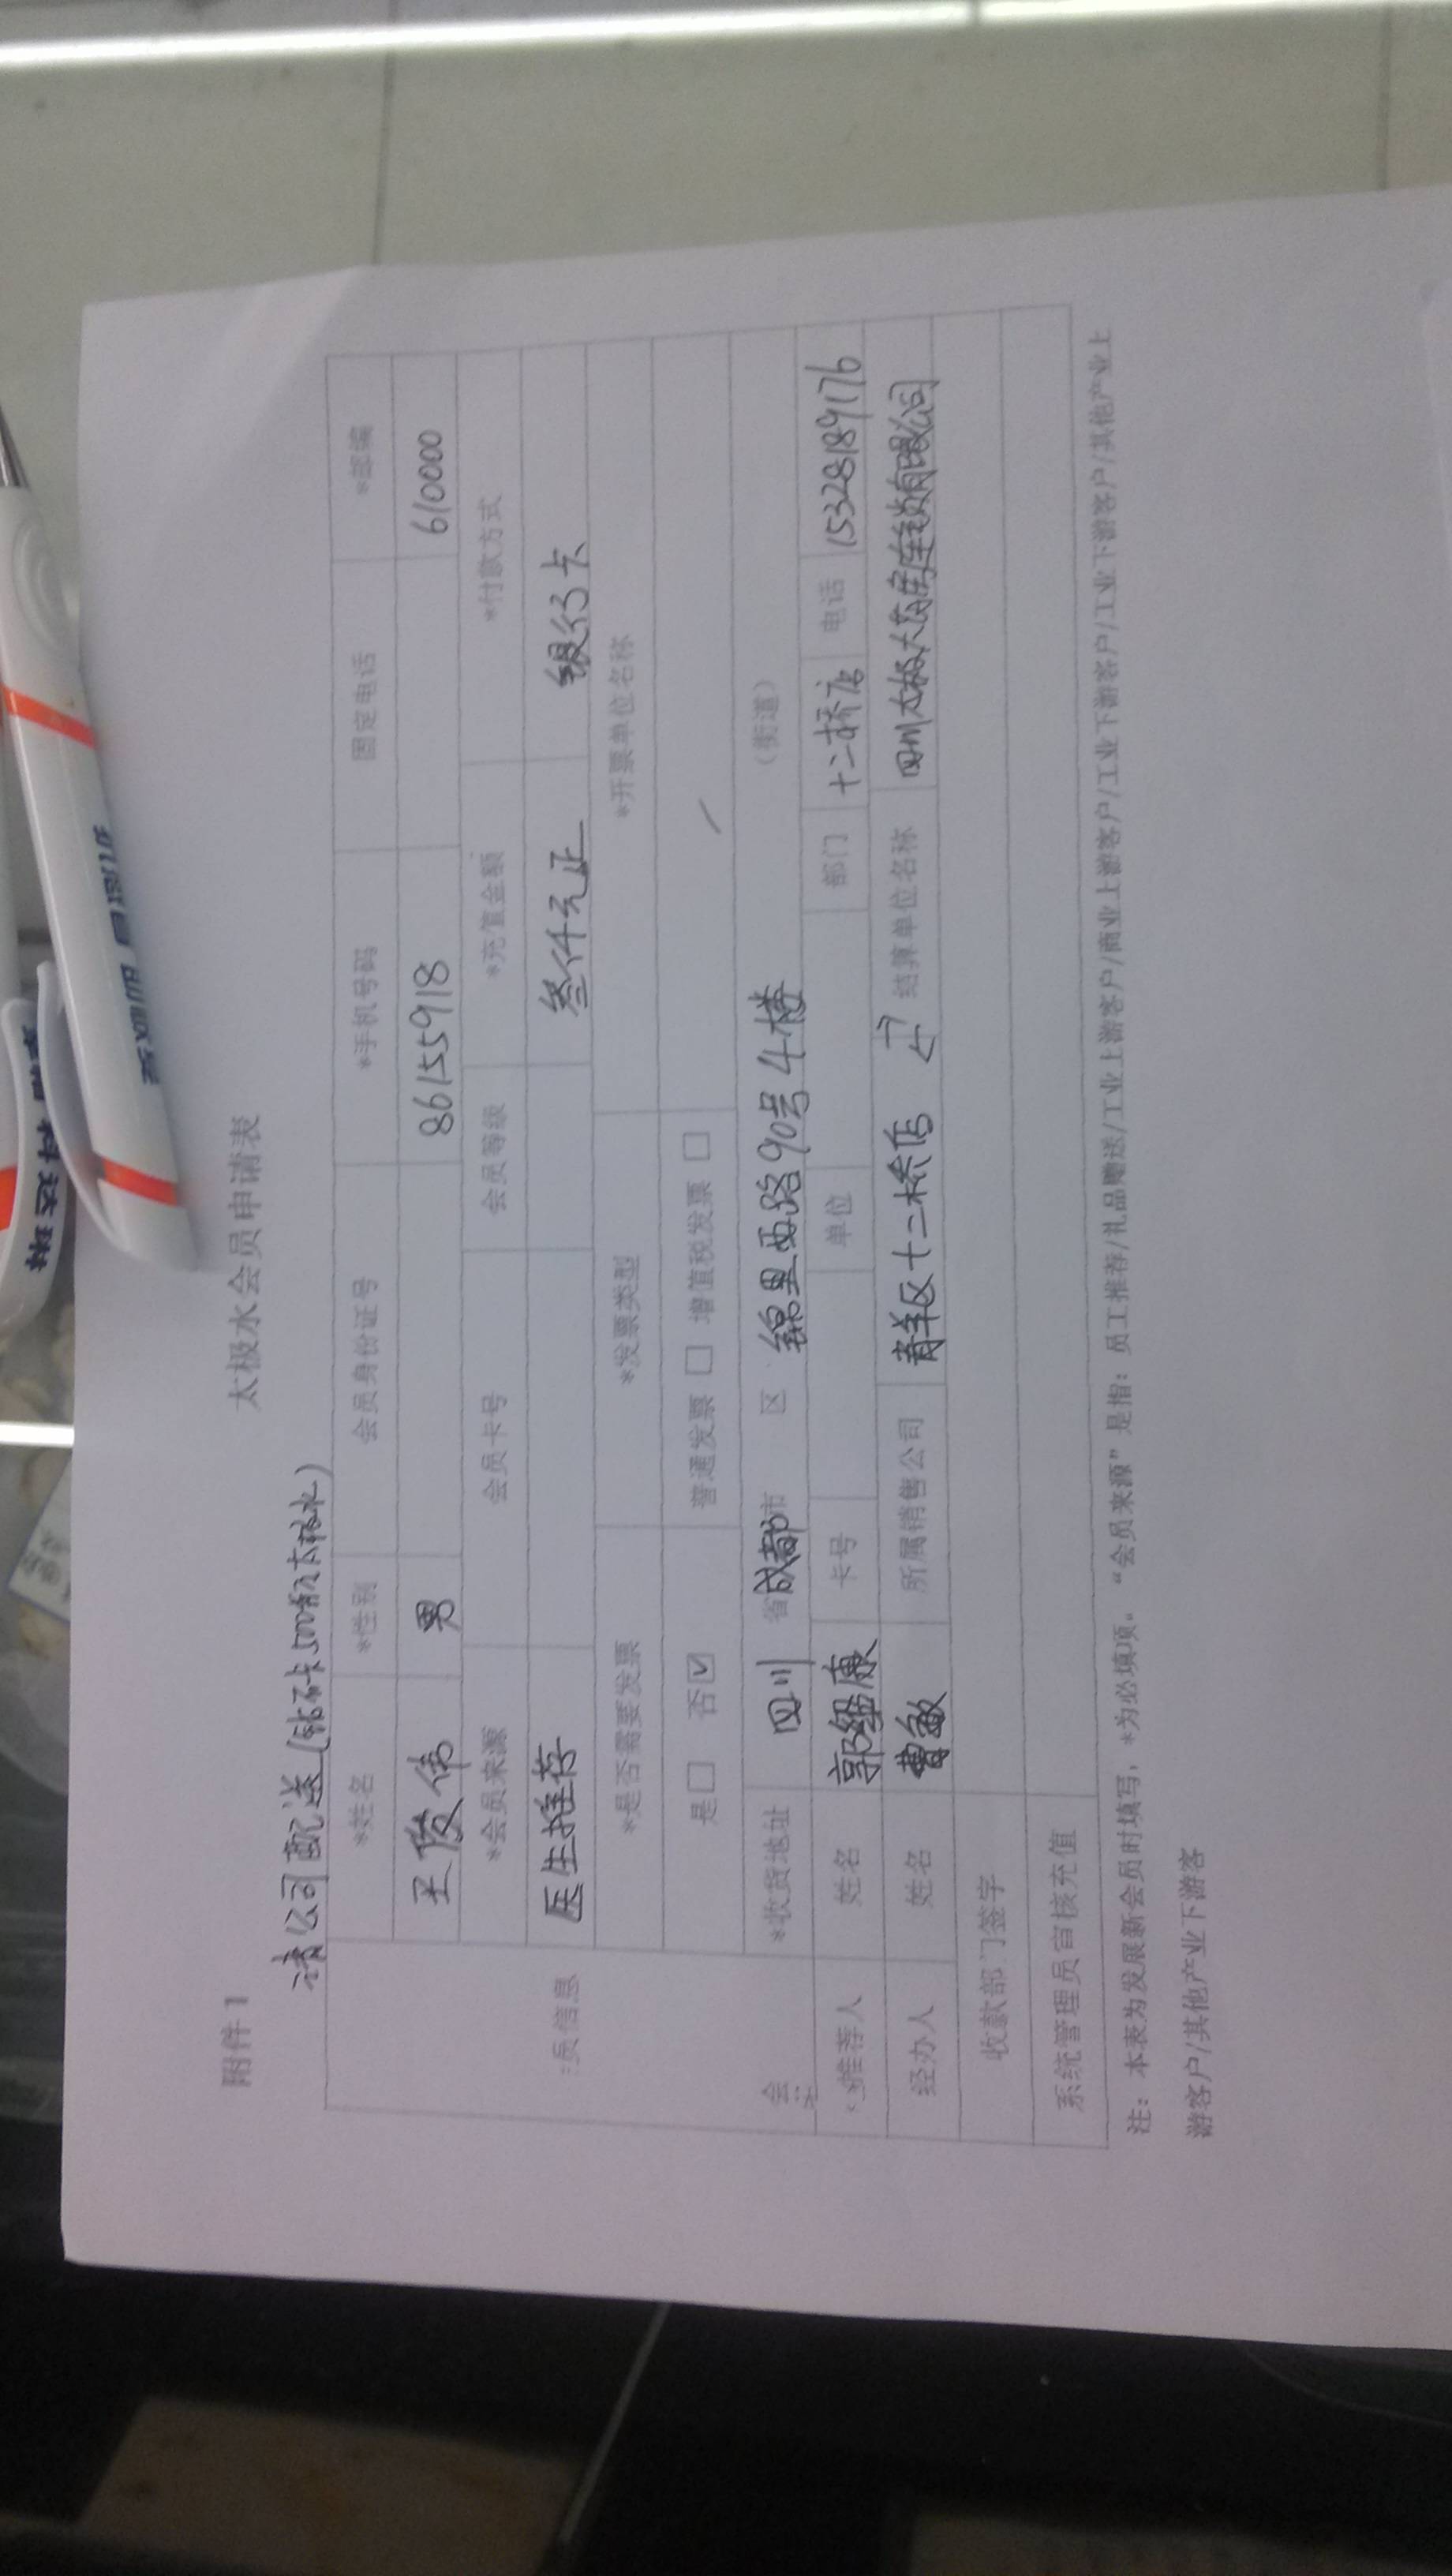 附件 1
太极水会员申请表
请公司配送(钻石卡500瓶太极水)
*姓名 *性别 会员身份证号 *手机号码 固定电话 *邮编
王俊伟 男 86155918 610000
*会员来源 会员卡号 会员等级 *充值金额 *付款方式
医生推荐 叁仟元正 银行卡
*是否需要发票 *发票类型 *开票单位名称
是□ 否☑ 普通发票 □ 增值税发票 □
会员信息
*收货地址 四川 省 成都 市 区 锦里西路90号4楼 (街道)
*推荐人 姓名 郭维康 卡号 单位 部门 十二桥店 电话 15328189176
经办人 姓名 曹敏 所属销售公司 青羊区十二桥店 结算单位名称 四川太极大药房连锁有限公司
收款部门签字
系统管理员审核充值
注: 本表为发展新会员时填写, *为必填项。“会员来源”是指: 员工推荐/礼品赠送/工业上游客户/商业上游客户/工业下游客户/工业下游客户/其他产业上
游客户/其他产业下游客